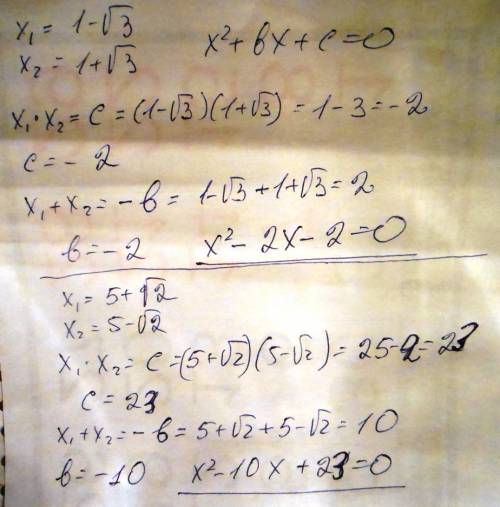 x₁ = 1-√3
x₂ = 1+√3
x²+bx+c=0
x₁·x₂=c=(1-√3)(1+√3)=1-3=-2
c=-2
x₁+x₂=-b=1-√3+1+√3=2
b=-2 x²-2x-2=0
x₁=5+√2
x₂=5-√2
x₁·x₂=c=(5+√2)(5-√2)=25-2=23
c=23
x₁+x₂=-b=5+√2+5-√2=10
b=-10 x²-10x+23=0